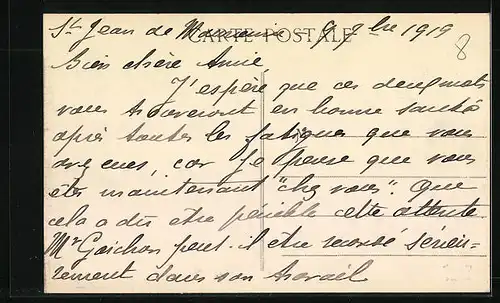 St Jean de Maurienne - 9 9bre 1919
CARTE POSTALE
8
Bien chère Amie
J'espère que ces deux mots
vous trouveront en bonne santé
après toutes les fatigues que vous
avez eues, car je pense que vous
êtes maintenant "chez vous". Que
cela a dû être pénible cette attente
Mr Gaichon peut-il être remis sérieu-
sement dans son travail